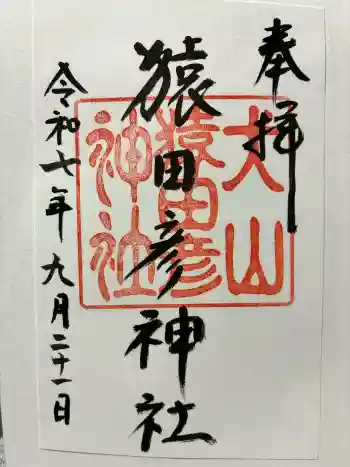 奉拝
大山
猿田彦
神社
猿田彦神社
令和七年九月二十一日